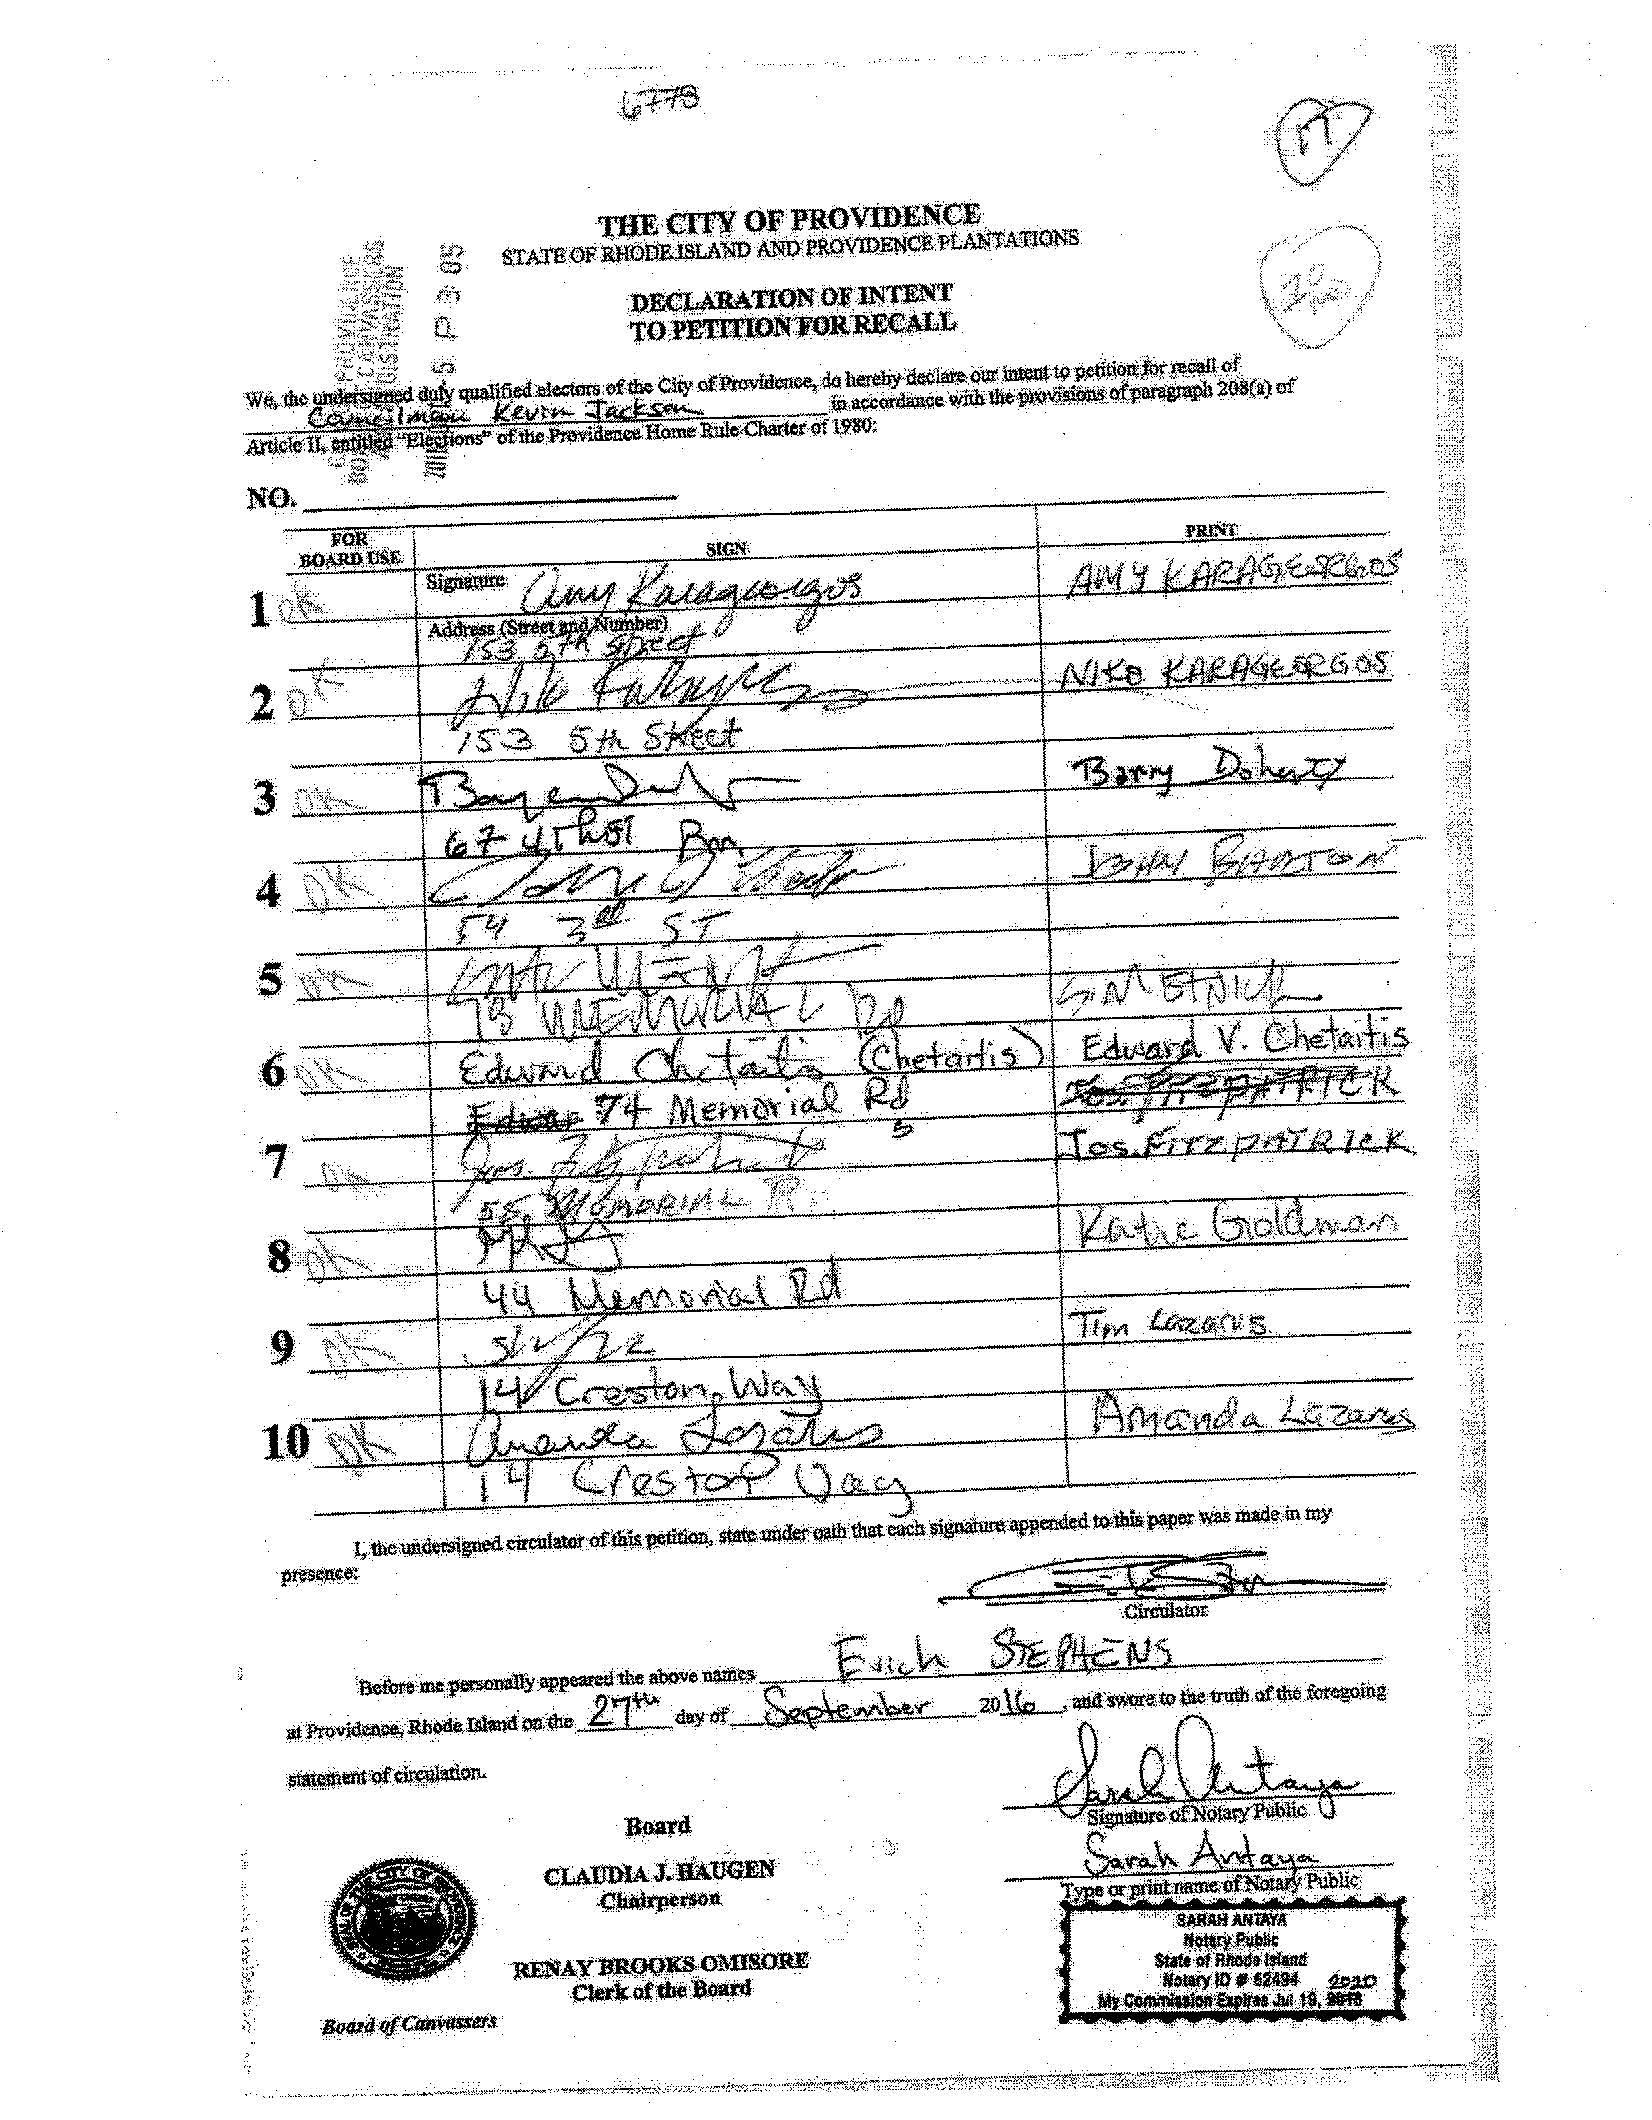 6778
17
THE CITY OF PROVIDENCE
STATE OF RHODE ISLAND AND PROVIDENCE PLANTATIONS
DECLARATION OF INTENT
TO PETITION FOR RECALL
We, the undersigned duly qualified electors of the City of Providence, do hereby declare our intent to petition for recall of
Councilman Kevin Jackson in accordance with the provisions of paragraph 208(a) of
Article II, entitled "Elections" of the Providence Home Rule Charter of 1980:
NO.
FOR BOARD USE SIGN PRINT
1 OK Signature Amy Karageorgos AMY KARAGEORGOS
Address (Street and Number)
153 5th Street
2 OK Niko NIKO KARAGEORGOS
153 5th Street
3 OK Barry Doherty
67 4th St
4 OK JOHN BARTON
54 3rd ST
5 OK
MEMORIAL RD
6 OK Edward Chetaitis (Chetaitis) Edward V. Chetaitis
74 Memorial Rd
Jos. FITZPATRICK
7 OK Jos. Fitzpatrick Jos. FITZPATRICK
55 MEMORIAL R
8 OK Katie Goldman
44 Memorial Rd
9 OK Tim Lazarus
14 Creston Way
10 OK Amanda Lazarus Amanda Lazarus
14 Creston Way
I, the undersigned circulator of this petition, state under oath that each signature appended to this paper was made in my
presence:
Circulator
Before me personally appeared the above names Erich STEPHENS
at Providence, Rhode Island on the 27th day of September 2016, and swore to the truth of the foregoing
statement of circulation.
Sarah Antaya
Signature of Notary Public
Sarah Antaya
Type or print name of Notary Public
Board
CLAUDIA J. HAUGEN
Chairperson
RENAY BROOKS OMISORE
Clerk of the Board
Board of Canvassers
SARAH ANTAYA
Notary Public
State of Rhode Island
Notary ID # 62494
2020
My Commission Expires Jul 19,